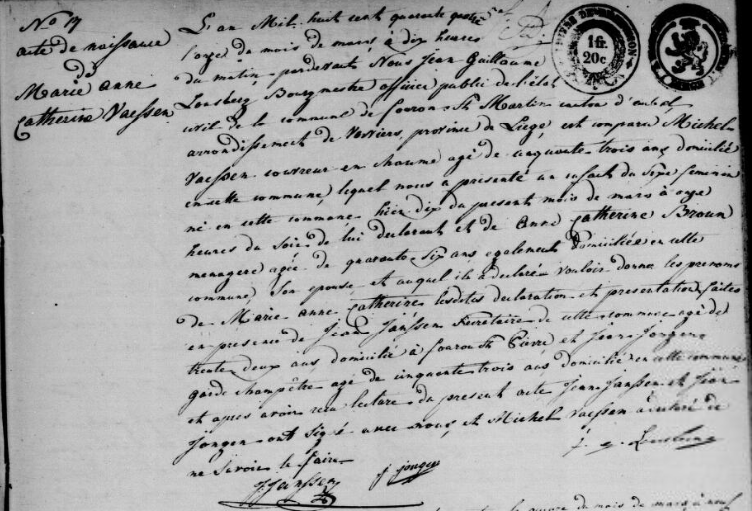 No 19
acte de naissance
de
Marie anne
Catherine Vaessen
L'an Mil huit cent quarante quatre
l'onze du mois de mars, à dix heures
du matin, pardevant Nous Jean Guillaume
Lensberg Bourgmestre officier public de l'état
civil de la commune de fouron St Martin canton d'aubel
arrondissement de Verviers, province de Liege est comparu Michel
Vaessen couvreur en chaume agé de cinquante trois ans domicilié
en cette commune, lequel nous a présenté un enfant du sexe feminin
né en cette commune hier dix du present mois de mars à onze
heures du soir de lui declarant et de Anne Catherine Broun
menagere agée de quarante six ans egalement domiciliée en cette
commune, son epouse et auquel il a declaré vouloir donner les prenoms
de Marie anne Catherine lesdites declaration et presentation faites
en presence de Jean Janssen Secretaire de cette commune agé de
trente deux ans domicilié à fouron St Pierre et Jean Jongen
garde champêtre agé de cinquente trois ans domicilié en cette commune
et apres avoir recu lecture du present acte Jean Janssen et Jean
Jongen ont signé avec nous, et Michel Vaessen a declaré de
ne Savoir le faire
J. g. Lensberg
J. Janssen
J. jongen
1 fr.
20 c